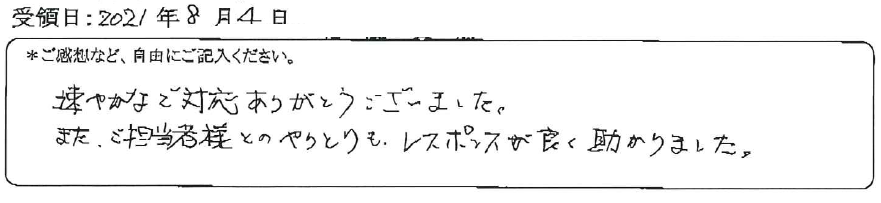 受領日:2021年8月4日
*ご感想など、自由にご記入ください。
速やかなご対応ありがとうございました。
また、ご担当者様とのやりとりも、レスポンスが良く助かりました。